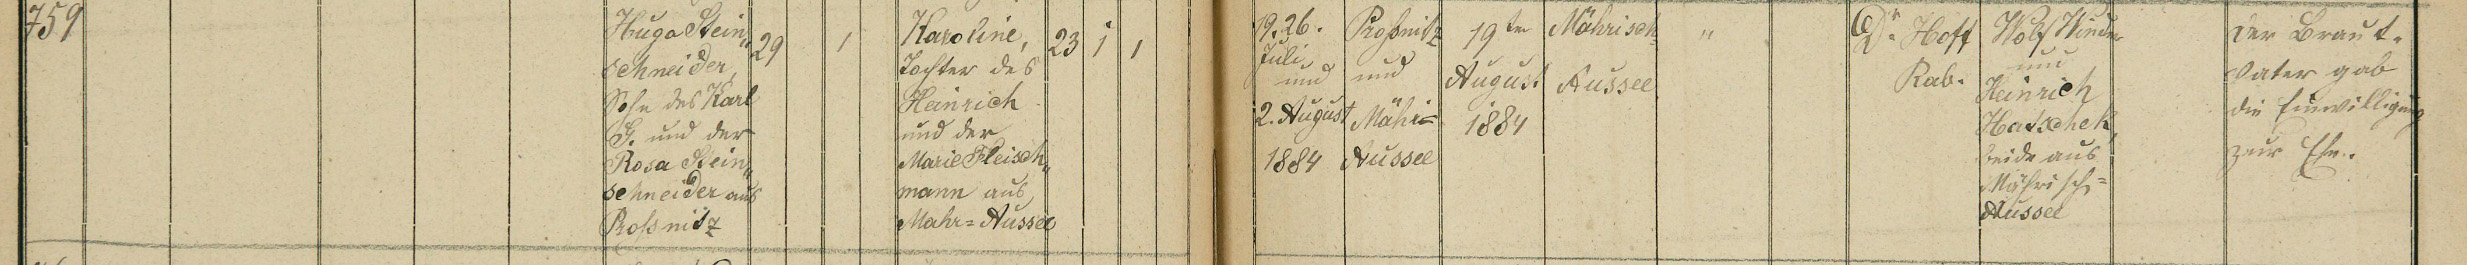 759
Hugo Stein„
schneider,
Sohn des Karl
S. und der
Rosa Stein„
schneider aus
Roßnitz
29
1
Karoline,
Tochter des
Heinrich
und der
Marie Fleisch„
mann aus
Mahr=Aussee
23 1 1
19. 26.
Juli
und
2. August
1884
Proßnitz
und
Mähr=
Aussee
19ten
August
1884
Mährisch-
Aussee
"
Dr. Hoff
Rab.
Wolf
und
Heinrich
Hatschek,
beide aus
Mährisch=
Aussee
Der Braut-
vater gab
die Einwilligung
zur Ehe.